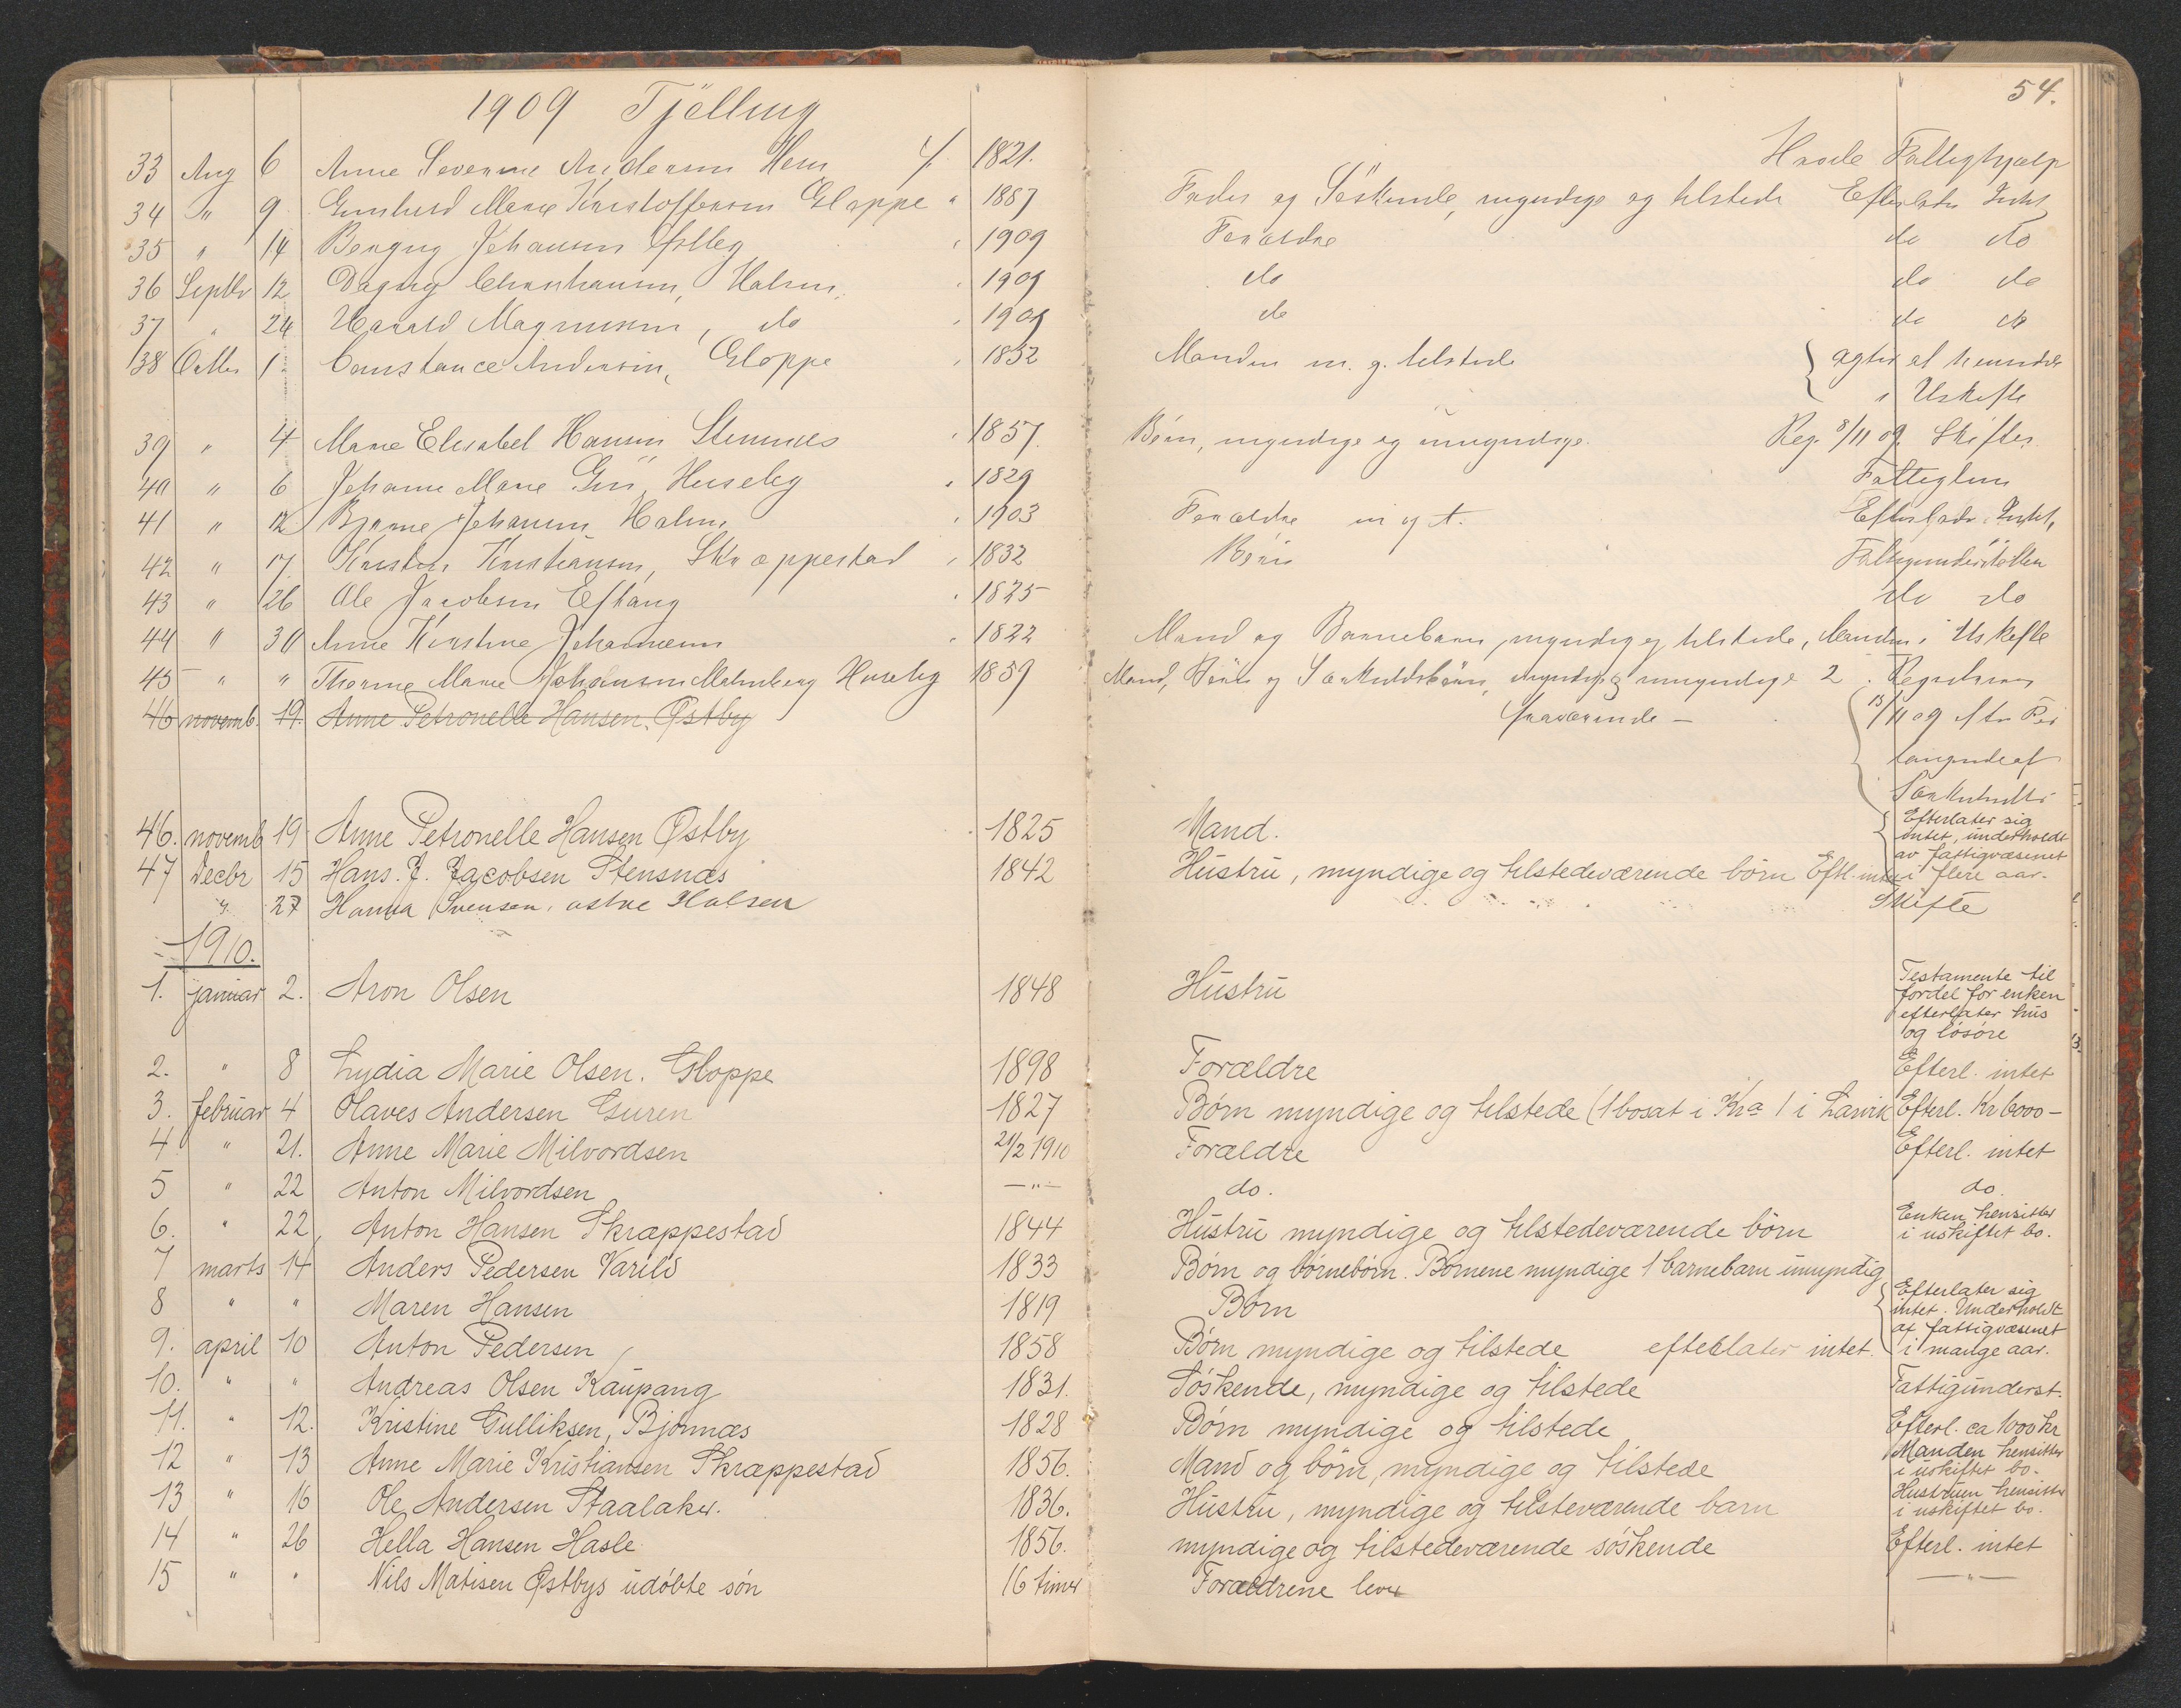 54.
1909 Tjölling
33 Aug 6 Anne Severine Andersen Hem 1821. Havde Fattighjælp
34 " 9 Gunhild Marie Kristoffersen Gloppe " 1887 Fader og Söskende, myndige og tilstede Efterlader Intet
35 " 14 Johansen 1909 Forældre do do
36 Septbr 12 Dagny Christiansen, Halsen 1909 do do do
37 " 24 Harald Magnussen, do 1909 do do do
38 Octbr 1 Constance Andersen, Gloppe 1852 Manden m. g. tilstede { agter at hensidde
i Uskifte
39 " 4 Marie Elisabet Hansen Stensnes 1857. Börn, myndige og umyndige. Reg. 8/11 09. Skiftes
40 " 6 Johanne Marie Huseby 1829 Fattiglem
41 " 12 Bjarne Johansen Halsen 1903 Forældre m og t. Efterlader Intet,
42 " 17 Kristen Kristiansen, Skræppestad 1832 Börn Fattigunderstöttet
43 " 26 Ole Jacobsen Eftang 1825 do do
44 " 30 Anne Kirstine Johannesen 1822 Mand og Barnebarn, myndig og tilstede, Manden i Uskifte
45 " " Thorine Marie Johansen Malmberg Huseby 1859 Mand, Börn og Særkuldsbörn, myndige og umyndige 2 Registreres
46 novemb. 19. Anne Petronelle Hansen. Østby fraværende — 15/11 09 efter For
langende af
Særkuldts
46. novemb 19 Anne Petronelle Hansen Østby 1825 Mand. { Efterlater sig
intet, underholdt
av fattigvæsenet
i flere aar.
47 Decbr 15 Hans. J. Jacobsen Stensnæs 1842 Hustru, myndige og tilstedeværende børn Eftl. intet
" 27 Hanna Svensen, østre Halsen Skifte
1910.
1. januar 2. Aron Olsen 1848 Hustru Testamente til
fordel for enken
efterlater hus
og løsøre
2. " 8 Lydia Marie Olsen. Gloppe 1898 Forældre Efterl. intet
3. februar 4 Olaves Andersen Guren 1827 Børn myndige og tilstede (1 bosat i Kra 1 i Larvik Efterl. Kr 6000 —
4 " 21. Anne Marie Milvordsen 21/2 1910 Forældre Efterl. intet
5 " 22 Anton Milvordsen —"— do. do.
6. " 22, Anton Hansen Skræppestad 1844 Hustru myndige og tilstedeværende børn Enken hensitter
i uskiftet bo.
7 marts 14 Anders Pedersen Varild 1833 Børn og børnebørn. Børnene myndige 1 barnebarn umyndig
8 " " Maren Hansen 1819 Børn { Efterlater sig
intet. Underholdt
af fattigvæsenet
i mange aar.
9. april 10 Anton Pedersen 1858 Børn myndige og tilstede efterlater intet.
10. " " Andreas Olsen Kaupang 1831. Søskende, myndige og tilstede Fattigunderst.
11. " 12. Kristine Gulliksen, Bjønnæs 1828 Børn myndige og tilstede Efterl. ca 1000 kr
12 " 13 Anne Marie Kristiansen Skræppestad 1856. Mand og børn, myndige og tilstede Manden hensitter
i uskiftet bo.
13 " 16 Ole Andersen Staalaker. 1836. Hustru, myndige og tilsteværende barn Hustruen hensitter
i uskiftet bo.
14 " 26 Hella Hansen Hasle 1856. myndige og tilstedeværende søskende Efterl. intet
15 " " Nils Matisen Østbys udøbte søn 16 timer Forældrene lever —"—